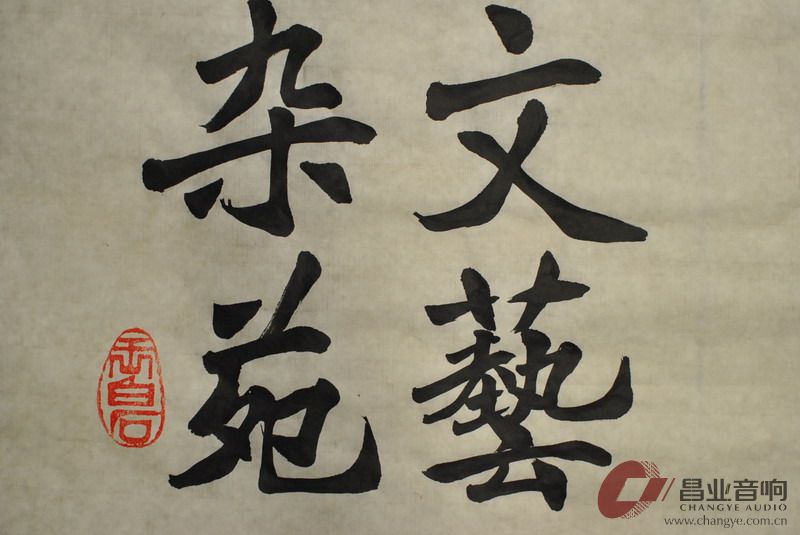 文藝
杂苑
昌业音响
CHANGYE AUDIO
www.changye.com.cn